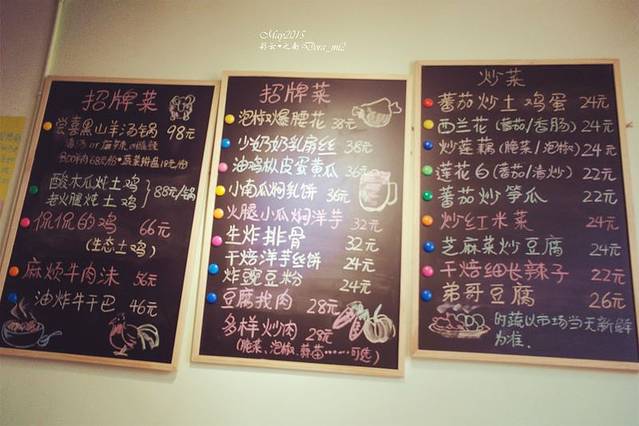 May2015
彩云•之南 Dora_mi2
招牌菜
尝喜黑山羊汤锅 98元
酸木瓜炖土鸡
老火腿炖土鸡
88元/锅
侃侃的鸡 66元
(生态土鸡)
麻烦牛肉沫 56元
油炸牛干巴 46元
招牌菜
泡椒爆腰花 38元
少奶奶私房丝 38元
油鸡枞皮蛋黄瓜 36元
小南瓜焖乳饼 36元
火腿小瓜焖洋芋 32元
生炸排骨 32元
干焙洋芋丝饼 24元
炸豌豆粉 24元
豆腐圆肉 28元
多样炒肉 28元
(腌菜、泡椒、蒜苗……可选)
炒菜
蕃茄炒土鸡蛋 24元
西兰花(蕃茄/香肠) 24元
炒莲藕(腌菜/泡椒) 24元
莲花6(蕃茄/清炒) 22元
蕃茄炒笋瓜 22元
炒红米菜 24元
芝麻菜炒豆腐 24元
干焙细长辣子 22元
弟哥豆腐 26元
时蔬以市场当天新鲜
为准.